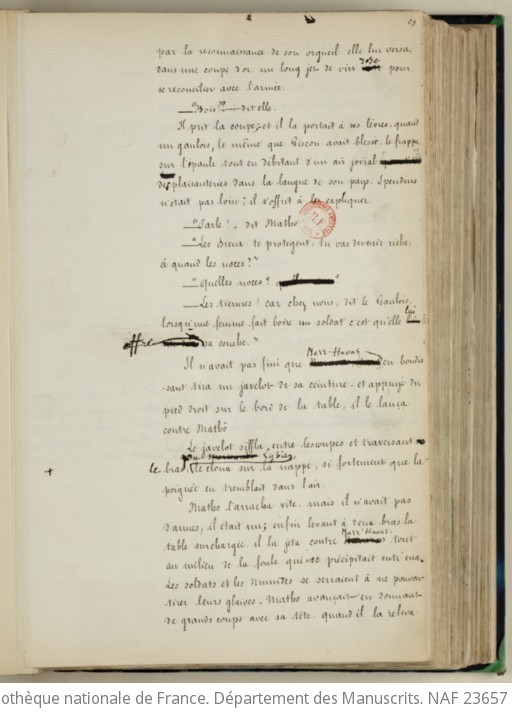 69
par la reconnaissance de son orgueil. elle lui versa,
dans une coupe d'or, un long jet de vin rose pour
se reconcilier avec l'armée.
— "Bois" — dit elle.
Il prit la coupe, et il la portait à ses lèvres, quand
un gaulois, le même que Giscon avait blessé, le frappa
sur l'épaule, tout en débitant d'un air jovial
des plaisanteries dans la langue de son pays. Spendius
n'était pas loin; il s'offrit à les expliquer.
— "Parle!" dit Matho
— "Les Dieux te protègent, tu vas devenir riche,
à quand les noces?"
— "quelles noces?"
— Les tiennes! car chez nous, dit le Gaulois,
lorsqu'une femme fait boire un soldat c'est qu'elle lui
offre sa couche."
Il n'avait pas fini que Narr-Havas en bondis
-sant tira un javelot de sa ceinture. et appuyé du
pied droit sur le bord de la table, il le lança
contre Mathô
Le javelot siffla entre les coupes et traversant
le bras le cloua sur la nappe, si fortement que la
poignée en tremblait dans l'air.
Matho l'arracha vite, mais il n'avait pas
d'armes, il était nu; enfin levant à deux bras la
table surchargée, il la jeta contre Narr'Havas tout
au milieu de la foule qui se précipitait entr'eux.
Les soldats et les Numides se serraient à ne pouvoir
tirer leurs glaives. Matho avançait en donnant
de grands coups avec sa tête. quand il la releva
othèque nationale de France. Département des Manuscrits. NAF 23657